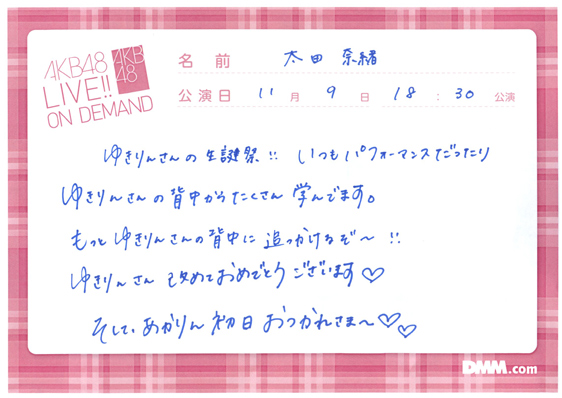 AKB48
LIVE!!
ON DEMAND
AKB
48
名前 太田 奈緒
公演日 11月 9日 18:30公演
ゆきりんさんの生誕祭!! いつもパフォーマンスだったり
ゆきりんさんの背中からたくさん学んでます。
もっとゆきりんさんの背中に追っかけるぞ〜!!
ゆきりんさん改めておめでとうございます♡
そして、あかりん初日おつかれさま〜♡♡
DMM.com